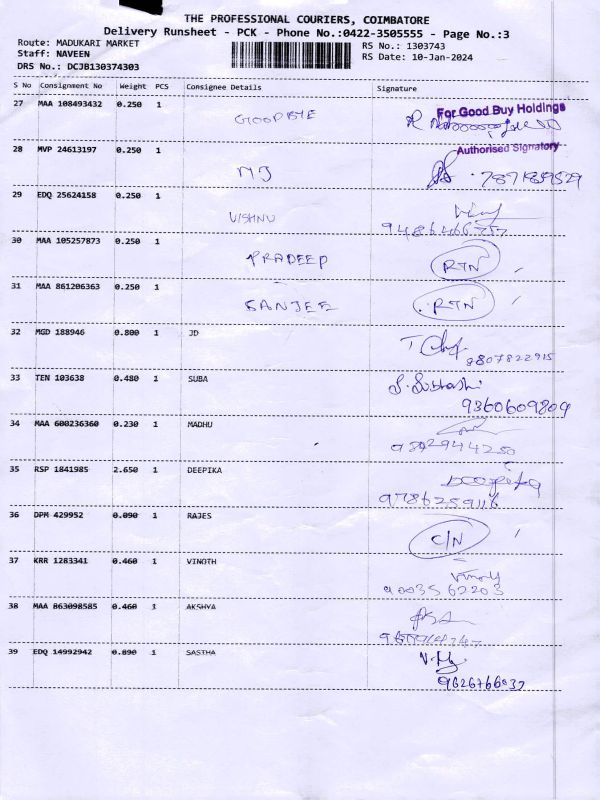 THE PROFESSIONAL COURIERS, COIMBATORE
Delivery Runsheet - PCK - Phone No.:0422-3505555 - Page No.:3
Route: MADUKARI MARKET RS No.: 1303743
Staff: NAVEEN RS Date: 10-Jan-2024
DRS No.: DCJB130374303
S No Consignment No Weight PCS Consignee Details Signature
27 MAA 108493432 0.250 1 GOODBYE For Good Buy Holdings
Authorised Signatory
28 MVP 24613197 0.250 1 MJ
29 EDQ 25624158 0.250 1 VISHNU
30 MAA 105257873 0.250 1 PRADEEP RTN
31 MAA 861206363 0.250 1 SANJEE RTN
32 MGD 188946 0.800 1 JD
8807822915
33 TEN 103638 0.480 1 SUBA
9360609809
34 MAA 600236360 0.230 1 MADHU
35 RSP 1841985 2.650 1 DEEPIKA
9786259116
36 DPM 429952 0.090 1 RAJES C/N
37 KRR 1283341 0.460 1 VINOTH
9003562203
38 MAA 863098585 0.460 1 AKSHYA
39 EDQ 14992942 0.890 1 SASTHA